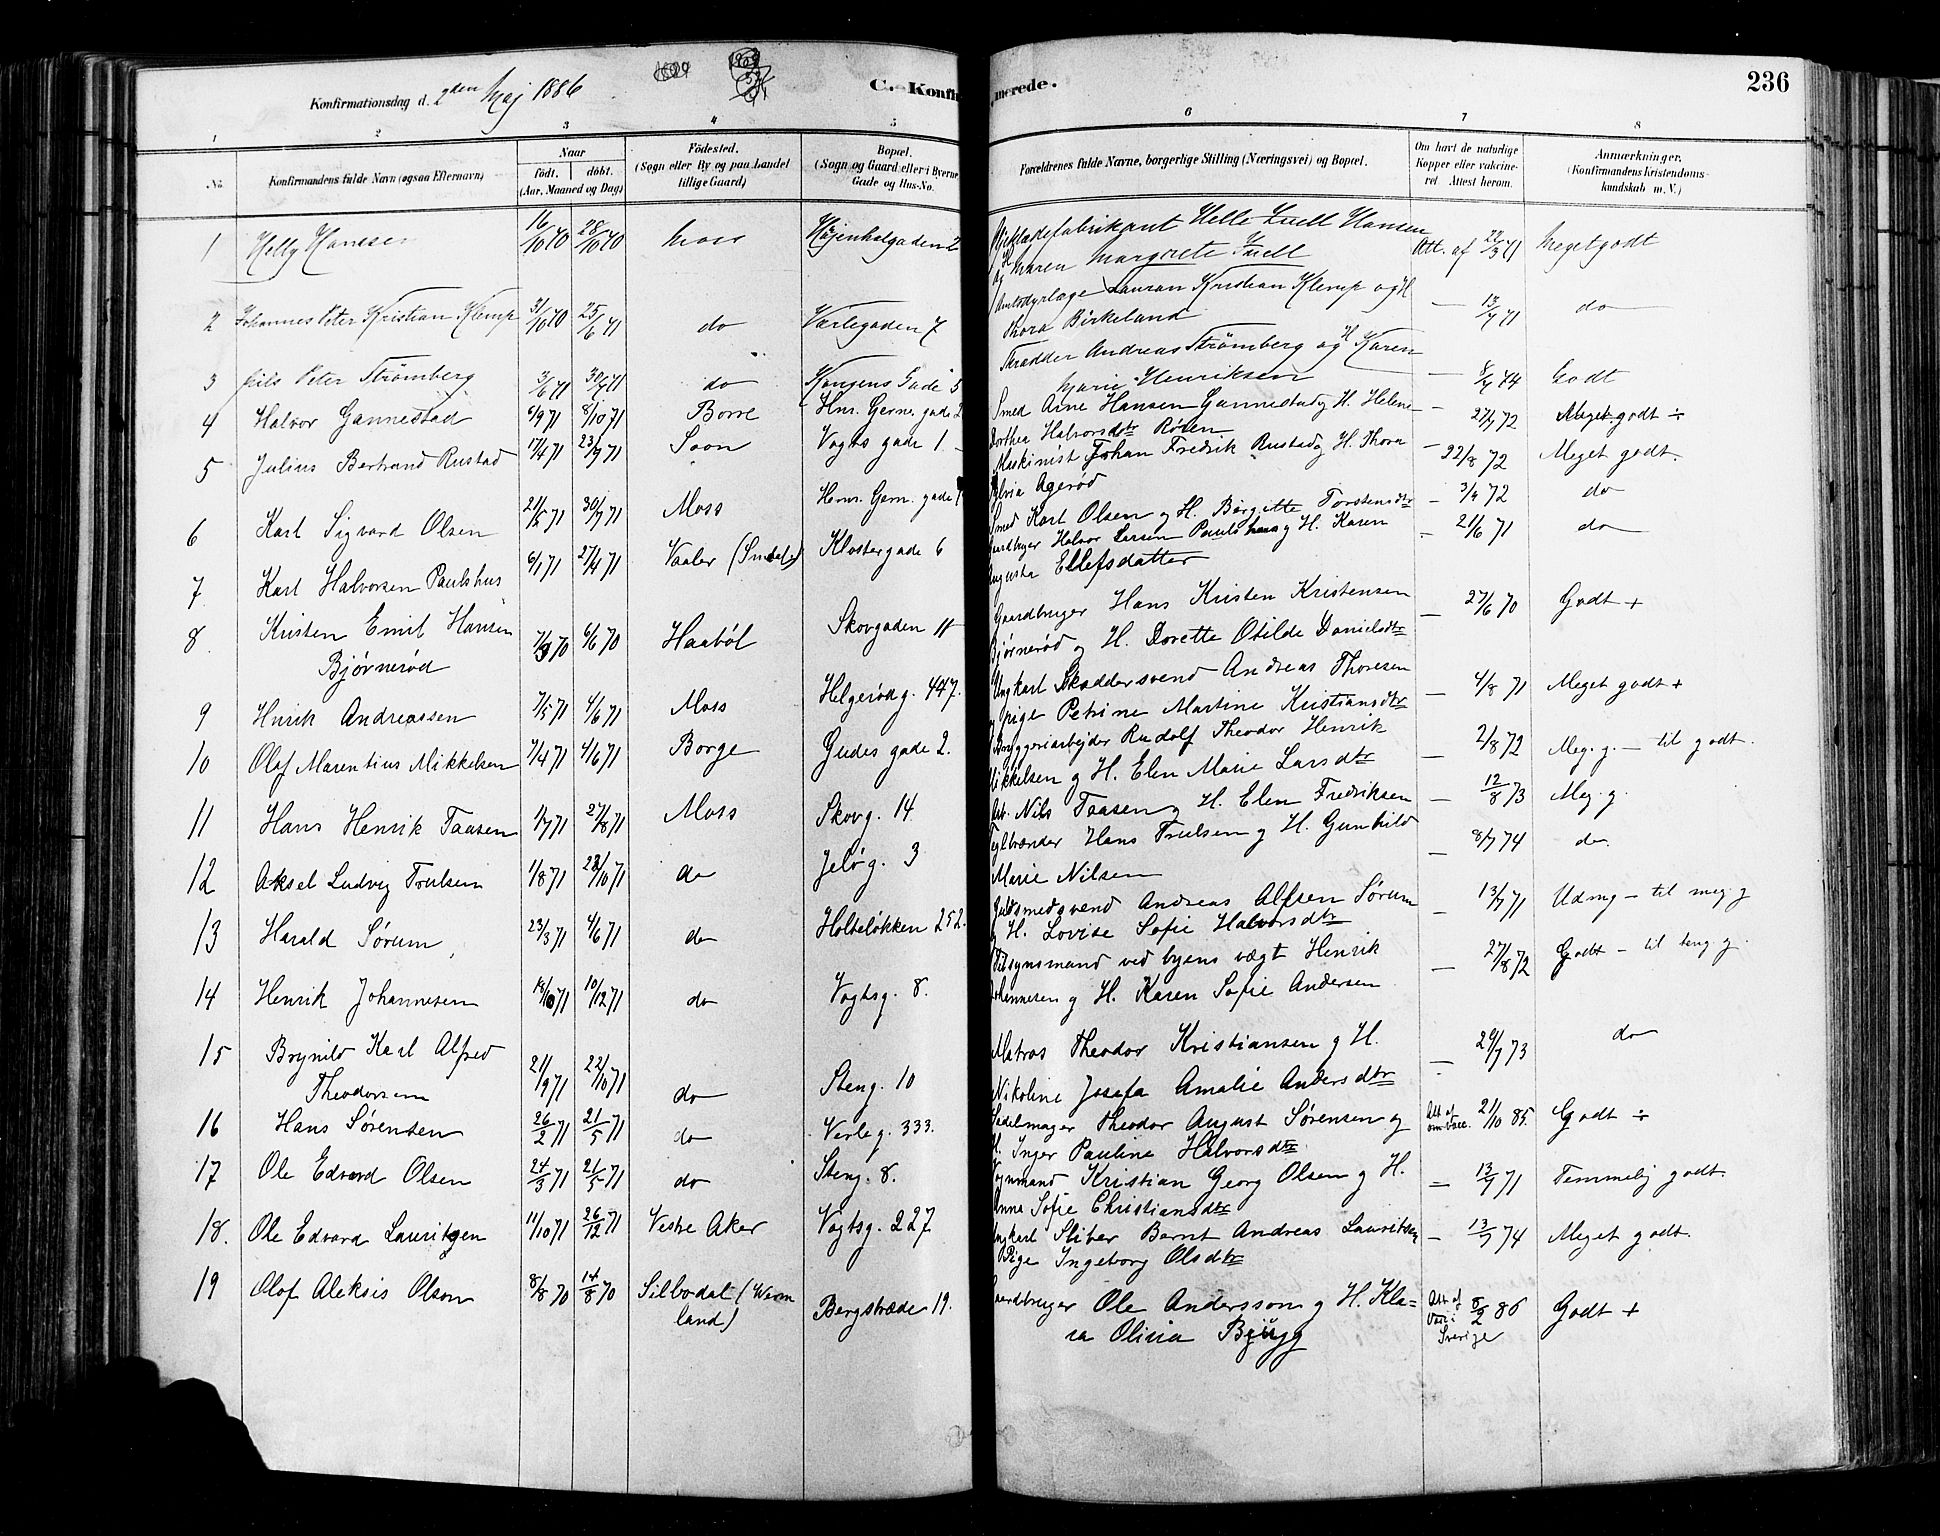 Konfirmationsdag d. 2den Maj 1886
C. Konfirmerede.
236
1 2 3 4 5 6 7 8
No.
Konfirmandens fulde Navn (ogsaa Efternavn)
Naar
födt. döbt.
(Aar, Maaned og Dag)
Födested.
(Sogn eller By og paa Landet
tillige Gaard)
Bopæl.
(Sogn og Gaard eller i Byerne
Gade og Hus-No.
Forældrenes fulde Navne, borgerlige Stilling (Næringsvei) og Bopæl.
Om havt de naturlige
Kopper eller vakcine-
ret. Attest herom.
Anmærkninger.
(Konfirmandens Kristendoms-
kundskab m. V.)
1 Helly Hansen 16/10 70 28/10 70 Moss 2 Helle Juell Hansen
og H Maren Margrete Juell Att. af 22/3 71 Meget godt
2 Johannes Peter Kristian Klemp 31/10 70 25/6 71 do Varlegaden 7 Amtsdyrlæge Lauran Kristian Klemp og H
Thora Birkeland — 13/7 71 do
3 Nils Peter Strömberg 3/6 71 30/7 71 do Kongens Gade 5 Skrædder Andreas Strömberg og H Karen
Marie Henriksen — 8/7 74 Godt
4 Halvor Gannestad 6/9 71 8/10 71 Borre Hnr. Gern. gade 2 Smed Arne Hansen Gannestad g H. Helene
Dorthea Halvorsdtr Rören — 27/7 72 Meget godt ÷
5 Julius Bertrand Rustad 17/4 71 23/7 71 Soon Vogts gade 1 Maskinist Johan Fredrik Rustad g H. Thora
Sylvia Agerød — 22/8 72 Meget godt.
6 Karl Sigvard Olsen 21/5 71 30/7 71 Moss Henr. Gern. gade 1 Smed Karl Olsen g H. Börgitte Torstensdtr — 3/9 72 do
7 Karl Halvorsen Paulshus 6/1 71 27/4 71 Vaaler Klostergade 6 Gaardbruger Halvor Larsen Paulshus g H. Karen
Augusta Ellefsdatter — 21/6 71 do
8 Kristen Emil Hansen
Bjørnerød 7/3 70 6/6 70 Haaböl Skovgaden 11 Gaardbruger Hans Kristen Kristensen
Bjørnerød g H. Dorette Otilde Danielsdtr — 27/6 70 Godt +
9 Henrik Andreassen 7/5 71 4/6 71 Moss Helgerød g. 447. Ungkarl Skaddersvend Andreas Thoresen
g pige Petrine Martine Kristiansdtr — 4/8 71 Meget godt +
10 Olaf Marentius Mikkelsen 7/4 71 4/6 71 Borge Gudes gade 2. Bryggeriarbejder Rudolf Theodor Henrik
Mikkelsen g H. Elen Marie Larsdtr — 2/8 72 Meg. g. — til godt.
11 Hans Henrik Taasen 1/7 71 27/8 71 Moss Skovg. 14 Arb. Nils Taasen g H. Elen Fredriksen — 12/8 73 Meg. g.
12 Aksel Ludvig Trulsen 1/8 71 22/10 71 do Jeløg. 3 Teglbrænder Hans Trulsen g H. Gunhild
Marie Nilsen — 8/7 74 do.
13 Harald Sørum 23/3 71 4/6 71 do Holteløkken 252. Guldsmedsvend Andreas Alfsen Sørum
g H. Lovise Sofie Halvorsdtr — 13/7 71 Udmg — til meg. g
14 Henrik Johannesen 14/10 71 10/12 71 do Vogtsg. 8. Tilsynsmand ved byens vægt Henrik
Johannesen g H. Karen Sofie Andersen — 27/8 72 Godt — til teng g.
15 Brynild Karl Alfred
Theodorsen 21/9 71 22/10 71 do Steng. 10 Matros Theodor Kristiansen g H.
Nikoline Josefa Amalie Andersdtr — 29/7 73 do
16 Hans Sörensen 26/2 71 21/5 71 do Verleg. 333. Sadelmager Theodor August Sørensen g
H. Inger Pauline Halvorsdtr Att. af om Vacc. 21/10 85. Godt ÷
17 Ole Edvard Olsen 24/3 71 21/5 71 do Steng. 8. Vognmand Kristian Georg Olsen g H.
Anna Sofie Christiansdtr — 13/7 71 Temmelig godt.
18. Ole Edvard Lauritzen 11/10 71 26/12 71 Vestre Aker Vogtsg. 227 Ungkarl Sliber Bernt Andreas Lauritzen
g Pige Ingeborg Olsdtr — 13/7 74 Meget godt.
19 Olof Aleksis Olson 8/8 70 14/8 70 Silbodal (Werm
land) Bergstræde 19. Gaardbruger Ole Andersson g H. Kla=
ra Olivia Brygg Att. af Vacc i Sverige 8/2 86 Godt +